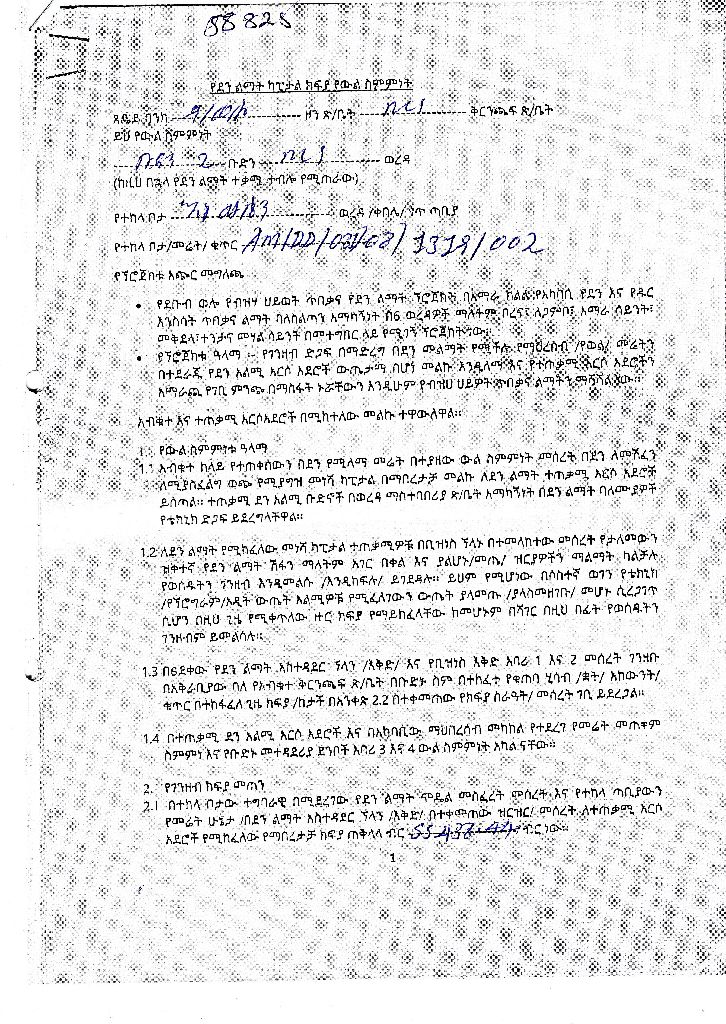 58825
የደን ልማት ካፒታል ክፍያ የውል ስምምነት
ጸዴይ ባንክ ዞን ጽ/ቤት ቅርንጫፍ ጽ/ቤት
ይህ የውል ስምምነት
2 ቡድን ወረዳ
(ከዚህ በኋላ የደን ልማት ተቃሚ ተብሎ የሚጠራው)
የተከላ ቦታ ወረዳ /ቀበሌ/ ንጥ ጣቢያ
የተከላ ቦታ/መሬት/ ቁጥር AM/DD/031/03/ 1319/002
የፕሮጀክቱ አጭር መግለጫ
• የደቡብ ወሎ የብዝሃ ህይወት ጥበቃና የደን ልማት ፕሮጀክት በአማራ ክልል የአካባቢ የደን እና የዱር
እንስሳት ጥበቃና ልማት ባለስልጣን አማካኝነት በ6 ወረዳዎች ማለትም ቦረና፣ ሌጋምቦ፣ አማራ ሳይንት፣
መቅደላ፣ተንታና መሃል ሳይንት በመተግበር ላይ የሚገኝ ፕሮጀክት ነው፡፡
• የፕሮጀክቱ ዓላማ ፡- የገንዘብ ድጋፍ በማድረግ በደን መልማት የሚችሉ የማህረሰብ /የወል/ መሬትን
በተደራጁ የደን አልሚ አርሶ አደሮች ውጤታማ በሆነ መልኩ እንዲለማ እና የተጠቃሚ አርሶ አደሮችን
አማራጪ የገቢ ምንጭ በማስፋት ኑሯቸውን እንዲሁም የብዝሀ ህይዎት ጥበቃና ልማትን ማሻሻል ነው፡፡
አብቁተ እና ተጠቃሚ አርሶአደሮች በሚከተለው መልኩ ተዋውለዋል፡፡
1. የውል ስምምነቱ ዓላማ
1.1 አብቁተ ከላይ የተጠቀሰውን በደን የሚለማ መሬት በተያዘው ውል ስምምነት መሰረት በደን ለመሸፈን
ለሚያስፈልግ ወጭ የሚያግዝ መነሻ ካፒታል በማበረታቻ መልኩ ለደን ልማት ተጠቃሚ አርሶ አደሮች
ይሰጣል፡፡ ተጠቃሚ ደን አልሚ ቡድኖች በወረዳ ማስተባበሪያ ጽ/ቤት አማካኝነት በደን ልማት ባለሙያዎች
የቴክኒክ ድጋፍ ይደረግላቸዋል፡፡
1.2 ለደን ልማት የሚከፈለው መነሻ ካፒታል ተጠቃሚዎቹ በቢዝነስ ፕላኑ በተመላከተው መሰረት የታለመውን
ዝቅተኛ የደን ልማት ሽፋን ማለትም አገር በቀል እና ያልሆኑ/መጤ/ ዝርያዎችን ማልማት ካልቻሉ
የወሰዱትን ገንዘብ እንዲመልሱ /እንዲከፍሉ/ ይገደዳሉ፡፡ ይህም የሚሆነው በሶስተኛ ወገን የቴክኒክ
/የፕሮግራም/ኦዲት ውጤት አልሚዎቹ የሚፈለገውን ውጤት ያላመጡ /ያላስመዘገቡ/ መሆኑ ሲረጋገጥ
ሲሆን በዚህ ጊዜ የሚቀጥለው ዙር ክፍያ የማይከፈላቸው ከመሆኑም በሻገር በዚህ በፊት የወሰዱትን
ገንዘብም ይመልሳሉ፡፡
1.3 በፀደቀው የደን ልማት አስተዳደር ፕላን /እቅድ/ እና የቢዝነስ እቅድ አባሪ 1 እና 2 መሰረት ገንዘቡ
በአቅራቢያው ባለ የአብቁተ ቅርንጫፍ ጽ/ቤት በቡድኑ ስም በተከፈተ የቁጠባ ሂሳብ /ቋት/ አካውንት/
ቁጥር በተከፋፈለ ጊዜ ክፍያ /ከታች በአንቀጽ 2.2 በተቀመጠው የክፍያ ስራዓት/ መሰረት ገቢ ይደረጋል፡፡
1.4 በተጠቃሚ ደን አልሚ አርሶ አደሮች እና በአካባቢው ማህበረሰብ መካከል የተደረገ የመሬት መጠቀም
ስምምነ እና የቡድኑ መተዳደሪያ ደንቦች አባሪ 3 እና 4 ውል ስምምነት አካል ናቸው፡፡
2. የገንዘብ ክፍያ መጠን
2.1 በተከላ ቦታው ተግባራዊ በሚደረገው የደን ልማት ሞዴል መስፈረት መሰረት እና የተከላ ጣቢያውን
የመሬት ሁኔታ /በደን ልማት አስተዳደር ፕላን /እቅድ/ በተቀመጠው ዝርዝር/ መሰረት ለተጠቃሚ አርሶ
አደሮች የሚከፈለው የማበረታቻ ክፍያ ጠቅላላ ብር ብር ነው፡፡
1